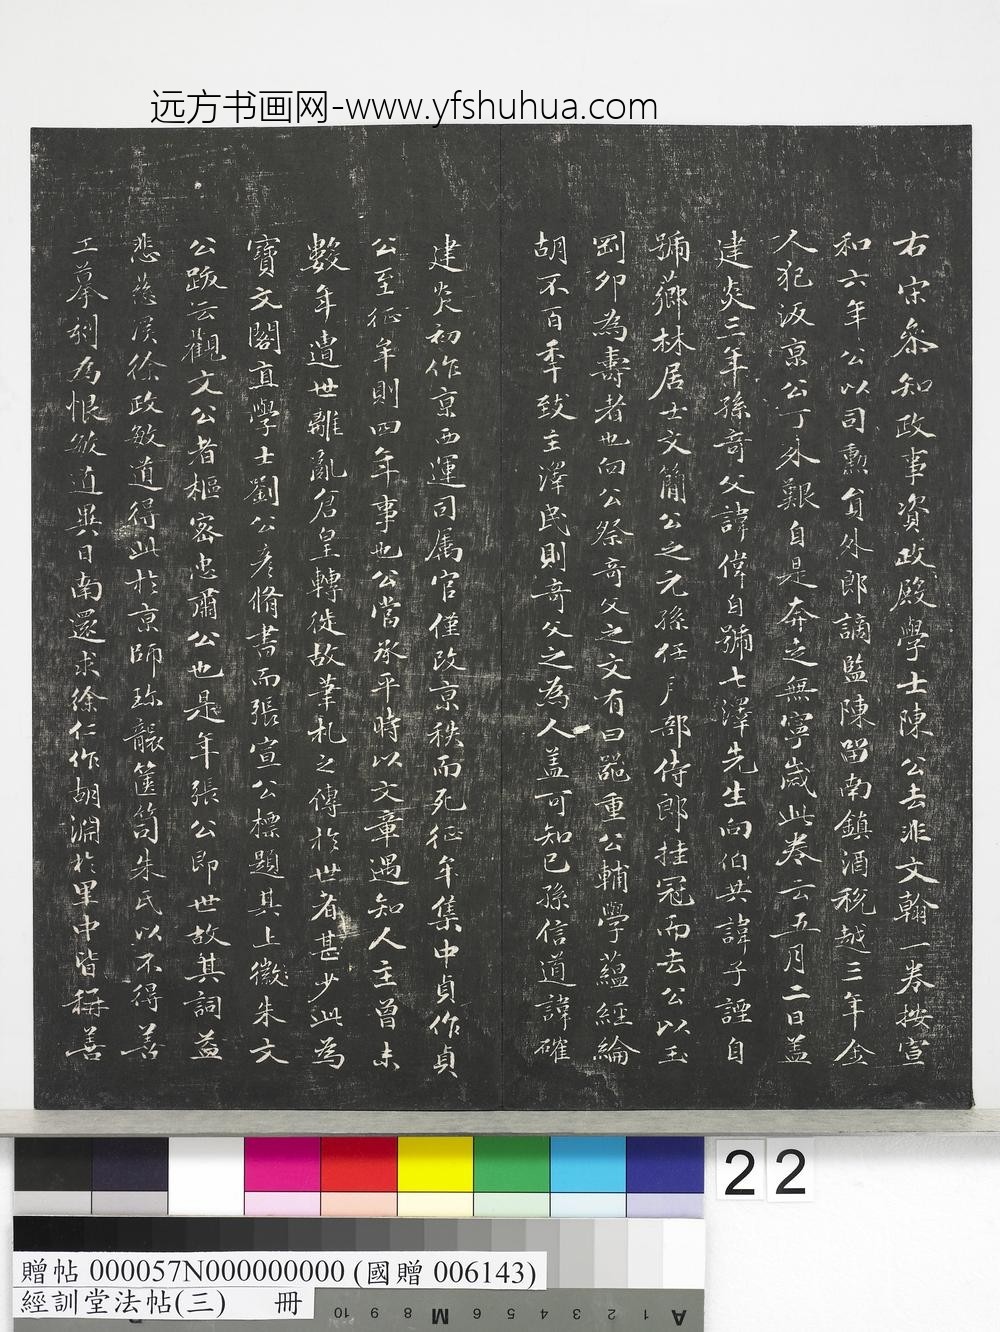 远方书画网-www.yfshuhua.com
右宋叅知政事資政殿學士陳公去非文翰一卷按宣
和六年公以司勲貟外郎謫監陳畱南鎮酒税越三年金
人犯汳京公丁外艱自是奔之無寧歲此卷云五月二日盖
建炎三年孫竒父諱偉自號七澤先生向伯共諱子諲自
號薌林居士文簡公之元孫任戶部侍郎挂冠而去公以玉
剛卯為壽者也向公祭竒父之文有曰噐重公輔學藴經綸
胡不百年致主澤民則竒父之為人盖可知已孫信道諱確
建炎初作京西運司屬官僅改京秩而死征年集中貞作貞
公至征年則四年事也公當承平時以文章遇知人主曾未
數年遭世離亂倉皇轉徙故筆札之傳於世者甚少此為
寶文閣直學士劉公彦脩書而張宣公標題其上徽朱文
公跋云觀文公者樞密忠肅公也是年張公即世故其詞益
悲慈溪徐政敏道得此於京師珎襲篋笥朱氏以不得善
工摹刻為恨敏道異日南還求徐仁作胡淵於里中皆稱善
22
贈帖 000057N000000000 (國贈 006143)
經訓堂法帖(三) 冊
A 1 2 3 4 5 6 M 8 9 10